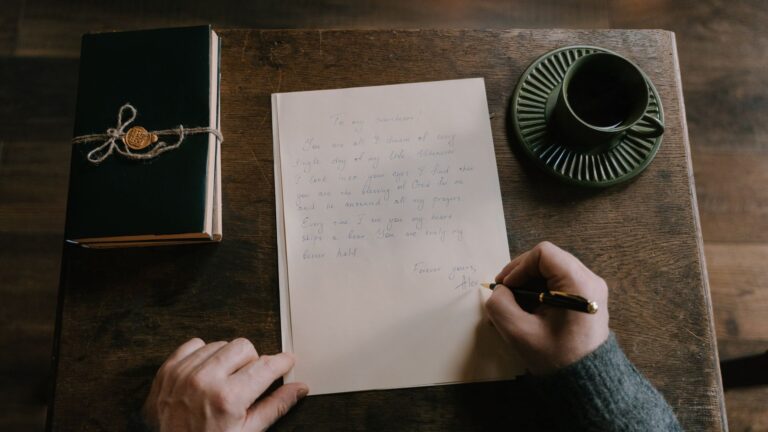 To my sunshine!
You are all I dream of every
single day of my life. Whenever
I look into your eyes I find that
you are the blessing of God to me
and he answered all my prayers
Every time I see you my heart
skips a beat. You are really my
better half.
Forever yours,
Alex